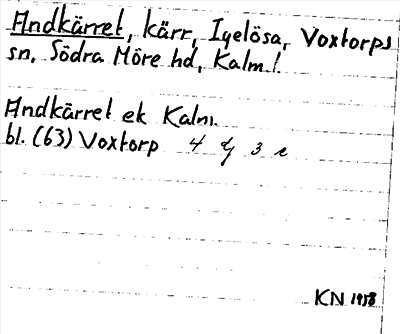 Andkärret, kärr, Igelösa, Voxtorps
sn, Södra Möre hd, Kalm l.
Andkärret ek Kalm.
bl. (63) Voxtorp 4 g 3 e
KN 1958